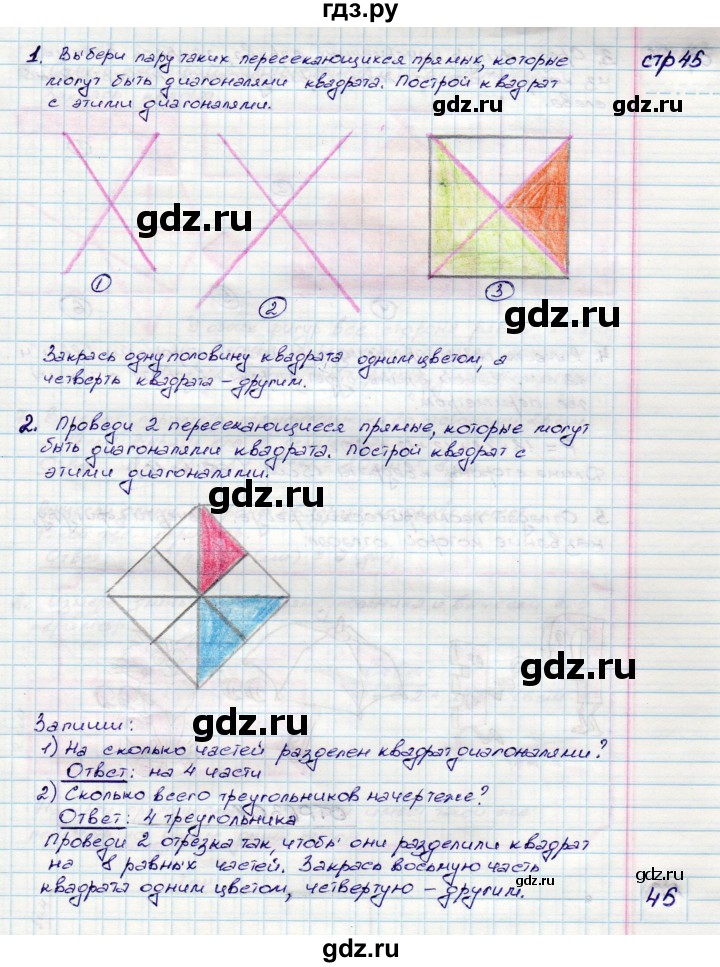 гдз.ру
стр 45
1. Выбери пару таких пересекающихся прямых, которые
могут быть диагоналями квадрата. Построй квадрат
с этими диагоналями.
gdz.ru
gdz.ru
gdz.ru
1
2
3
gdz.ru
Закрась одну половину квадрата одним цветом, а
четверть квадрата – другим.
2. Проведи 2 пересекающиеся прямые, которые могут
быть диагоналями квадрата. Построй квадрат с
этими диагоналями.
gdz.ru
gdz.ru
gdz.ru
Запиши:
1) На сколько частей разделен квадрат диагоналями?
Ответ: на 4 части
2) Сколько всего треугольников на чертеже?
Ответ: 4 треугольника
Проведи 2 отрезка так, чтобы они разделили квадрат
на 8 равных частей. Закрась восьмую часть
квадрата одним цветом, четвертую – другим.
45
gdz.ru
gdz.ru
гдз.ру